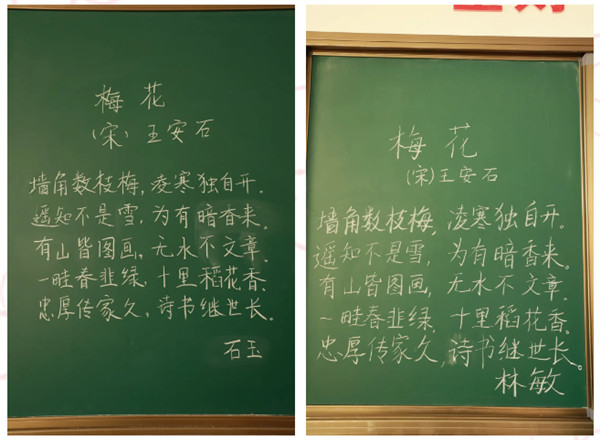 梅花
(宋)王安石
墙角数枝梅,凌寒独自开.
遥知不是雪,为有暗香来.
有山皆图画,无水不文章.
一畦春韭绿,十里稻花香.
忠厚传家久,诗书继世长.
石玉
梅花
(宋)王安石
墙角数枝梅,凌寒独自开.
遥知不是雪,为有暗香来。
有山皆图画,无水不文章.
一畦春韭绿,十里稻花香.
忠厚传家久,诗书继世长。
林敏